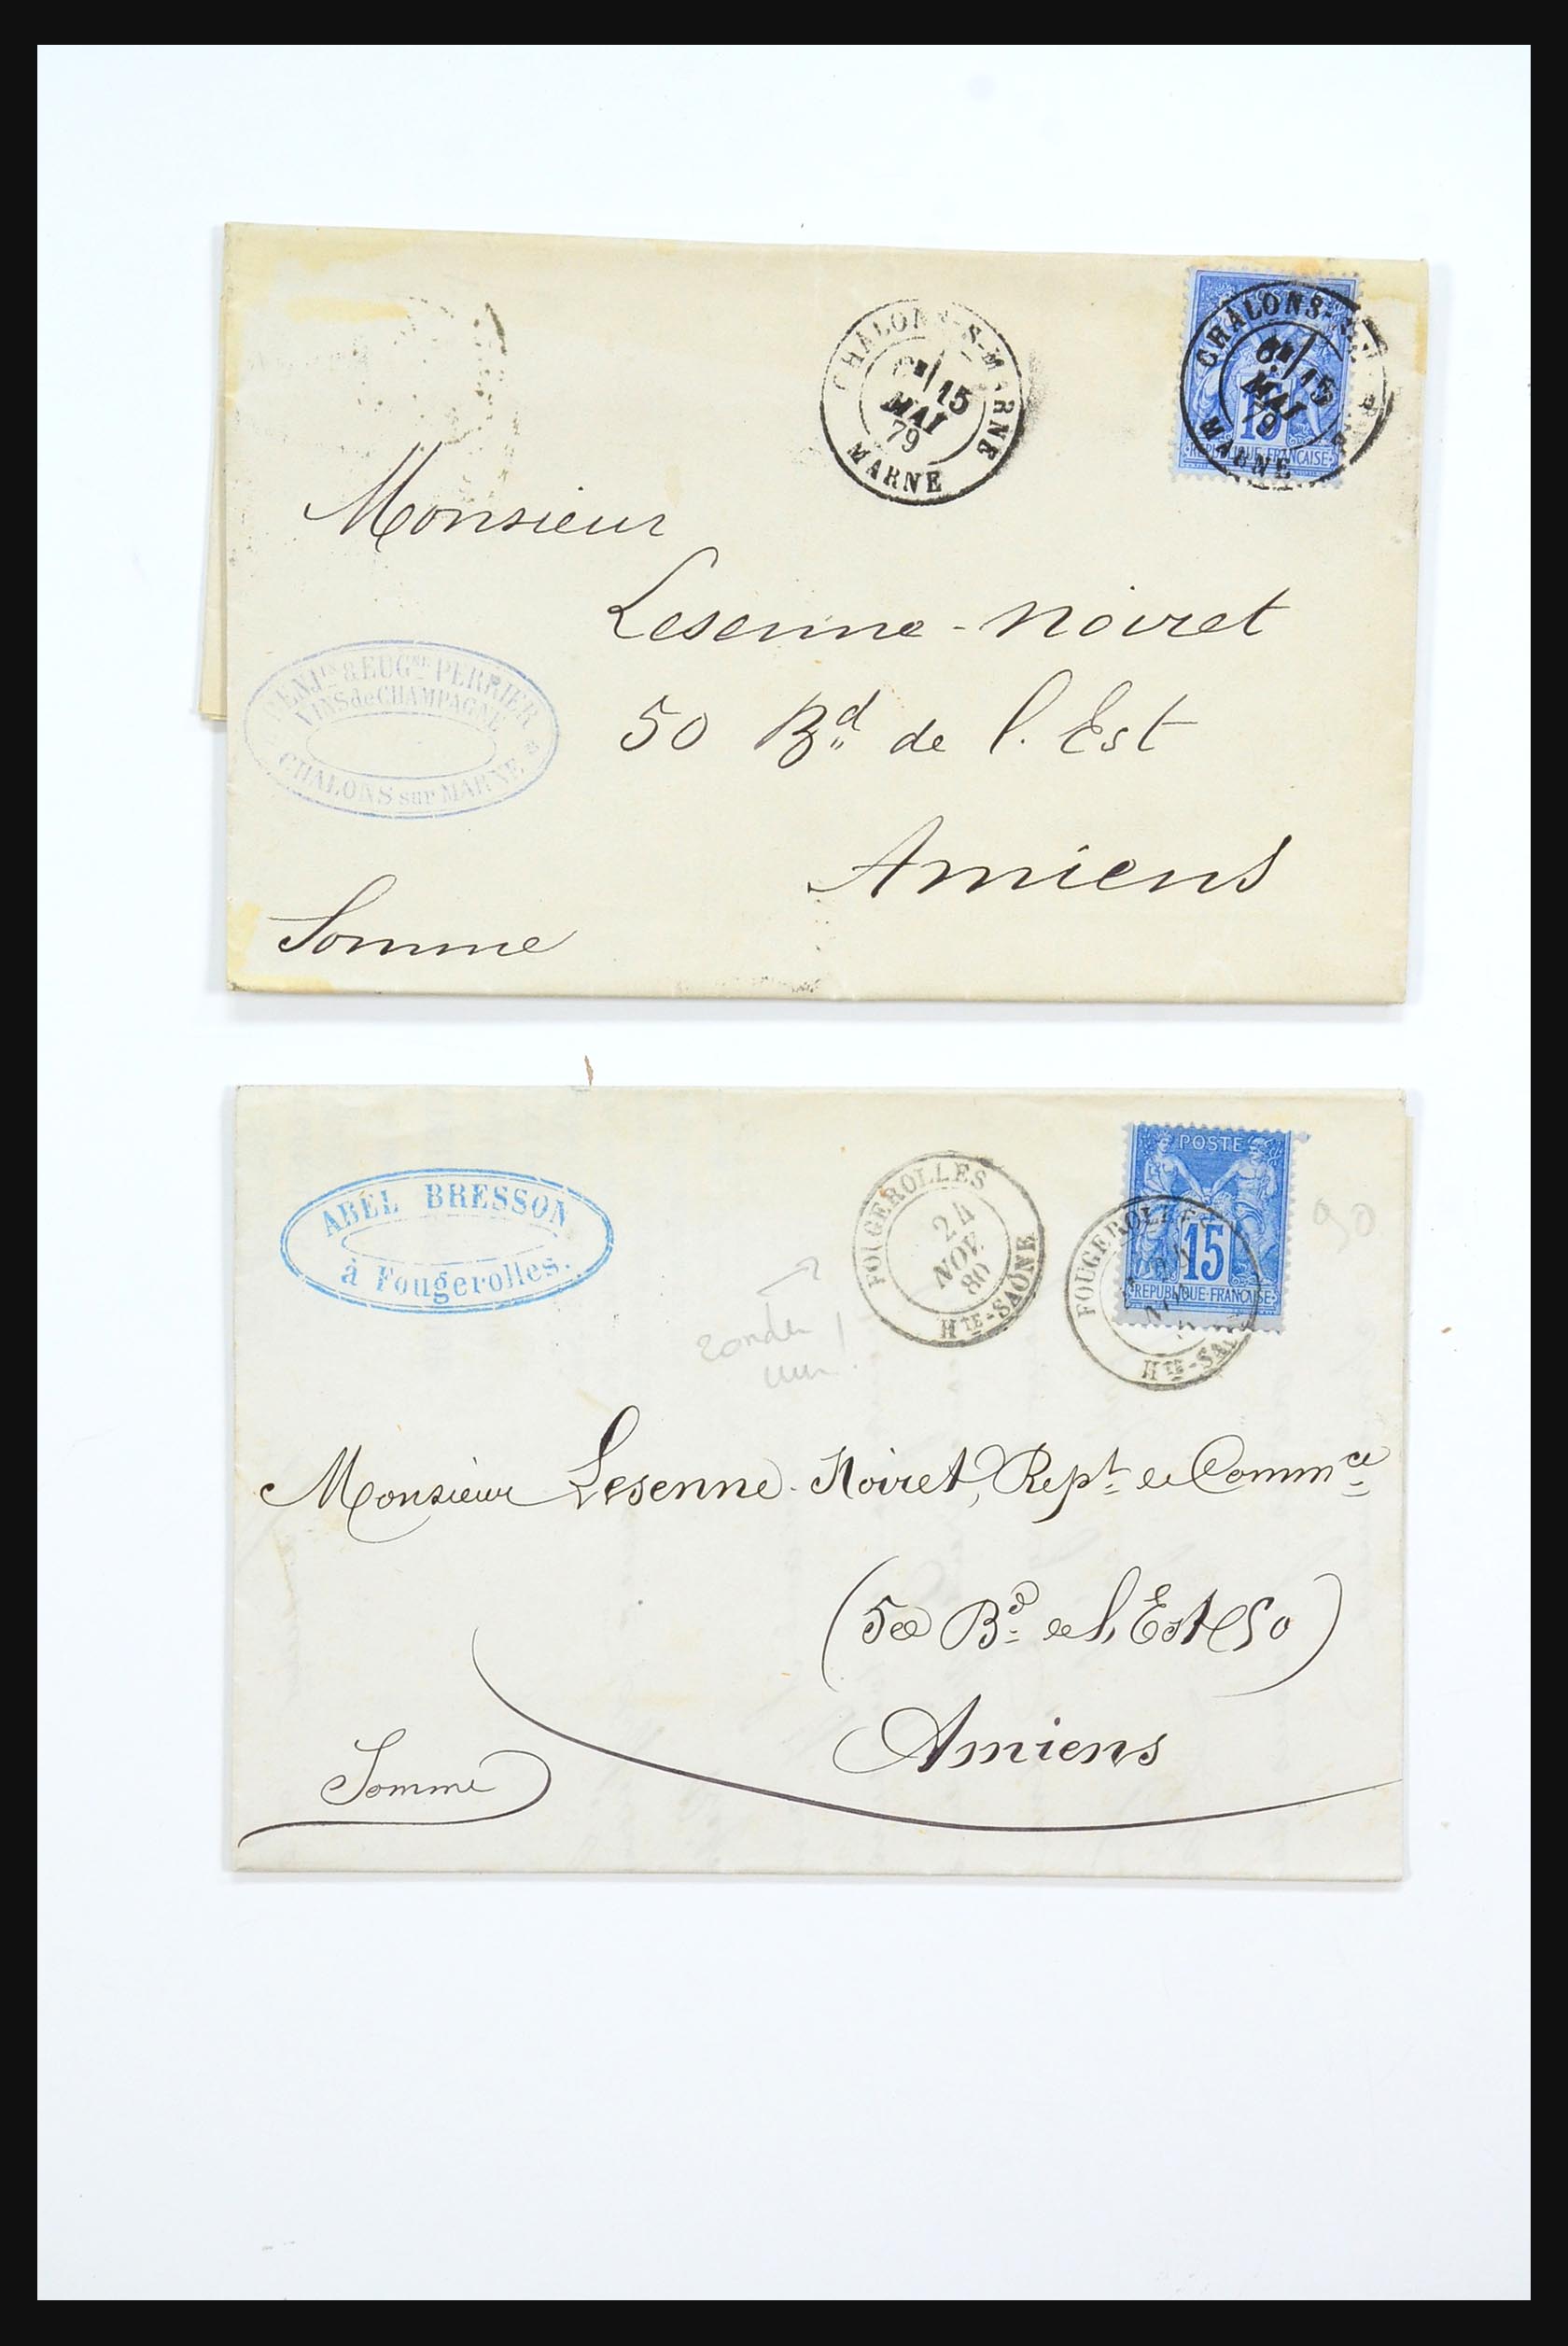 CHALONS-S-MARNE
6E/15
MAI
79
MARNE
CHALONS-
6E/15
MAI
79
MARNE
15
REPUBLIQUE FRANCAISE
Monsieur
Lesenne-Noiret
50 Bd de l'Est
Amiens
Somme
BENJIN & EUGNE PERRIER
VINS de CHAMPAGNE
CHALONS sur MARNE
ABEL BRESSON
à Fougerolles.
FOUGEROLLES
24
NOV.
80
HTE-SAÔNE
POSTE
15
REPUBLIQUE FRANCAISE
FOUGEROLLES
HTE-SA
90
zonder
uur!
Monsieur Lesenne-Noiret, Rept de Commce
(50 Bd de l'Est 50)
Amiens
Somme